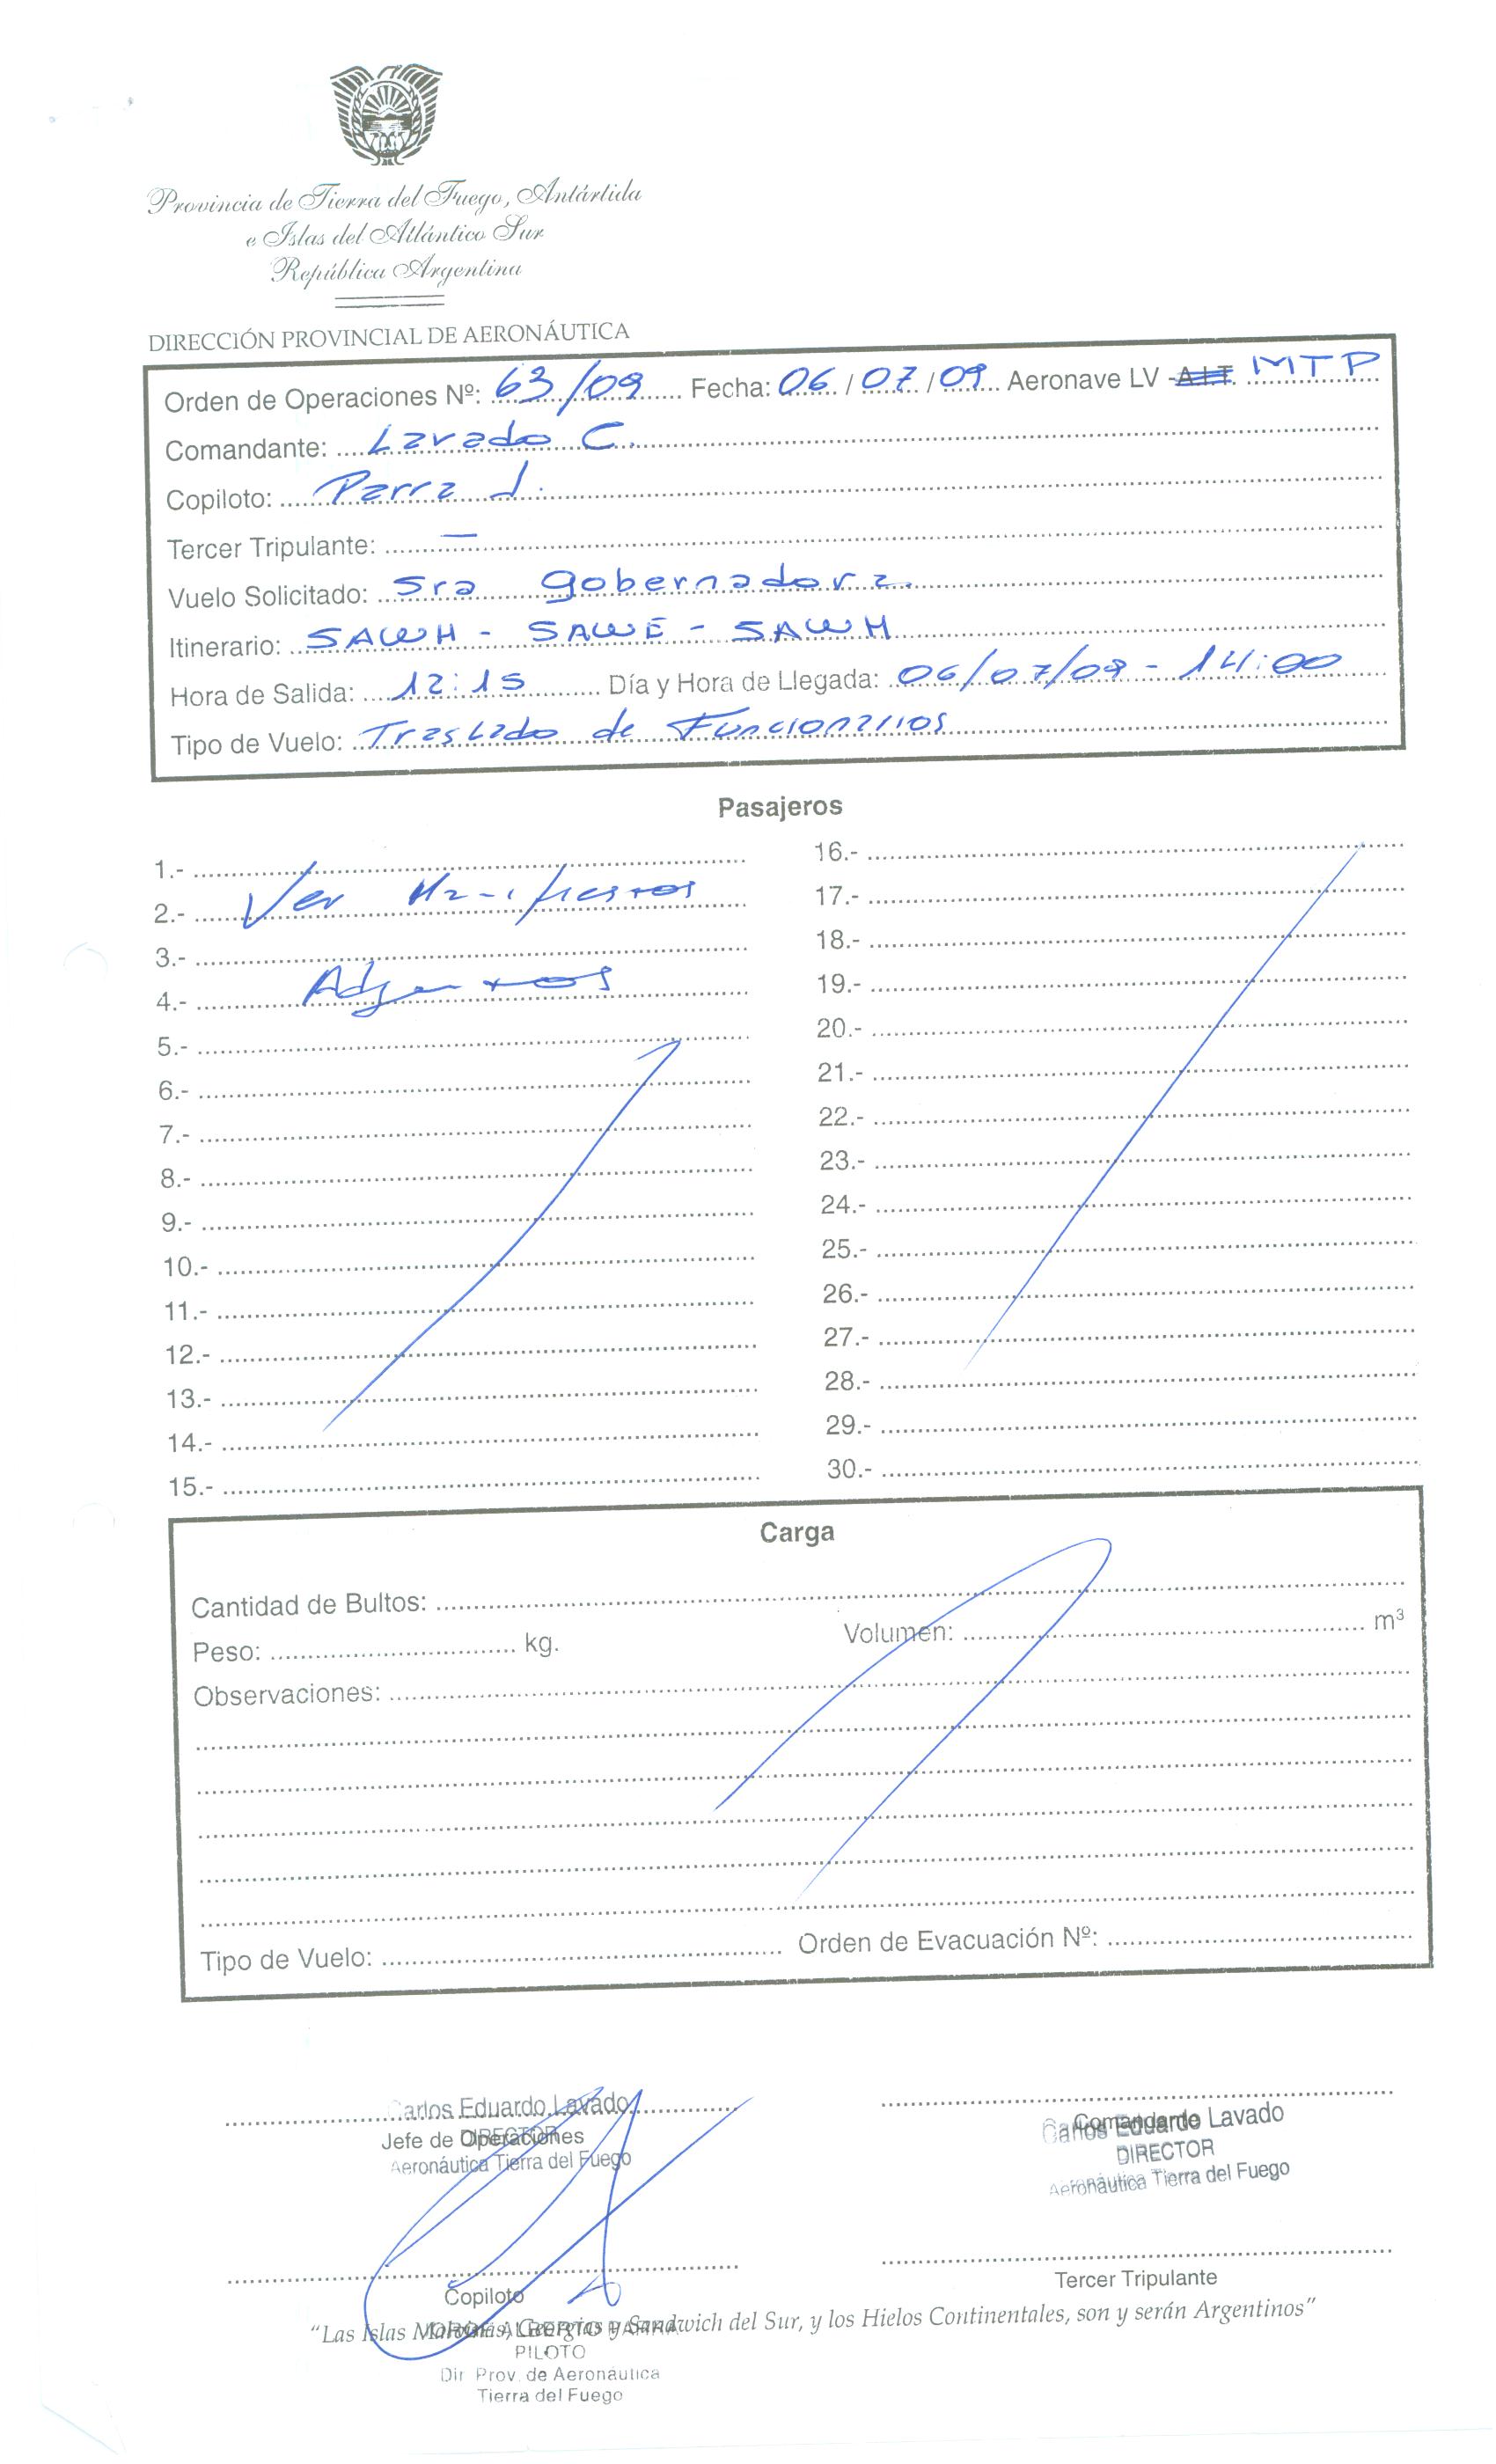 Provincia de Tierra del Fuego, Antártida
e Islas del Atlántico Sur
República Argentina
DIRECCIÓN PROVINCIAL DE AERONÁUTICA
Orden de Operaciones Nº: 63/09 Fecha: 06 / 07 / 09 Aeronave LV - A.I.T. MTP
Comandante: Lavado C.
Copiloto: Parra J.
Tercer Tripulante: —
Vuelo Solicitado: Sra gobernadora.
Itinerario: SAWH - SAWE - SAWH
Hora de Salida: 12:15 Día y Hora de Llegada: 06/07/09 - 14:00
Tipo de Vuelo: Traslado de Funcionarios
Pasajeros
1.-
2.- Ver Manifiestos
3.-
4.- Adjuntos
5.-
6.-
7.-
8.-
9.-
10.-
11.-
12.-
13.-
14.-
15.-
16.-
17.-
18.-
19.-
20.-
21.-
22.-
23.-
24.-
25.-
26.-
27.-
28.-
29.-
30.-
Carga
Cantidad de Bultos:
Peso: kg. Volumen: m³
Observaciones:
Tipo de Vuelo: Orden de Evacuación Nº:
Carlos Eduardo Lavado
Jefe de Operaciones
DIRECTOR
Aeronáutica Tierra del Fuego
Comandante
Carlos Eduardo Lavado
DIRECTOR
Aeronáutica Tierra del Fuego
Copiloto
Tercer Tripulante
"Las Islas Malvinas, Georgias y Sandwich del Sur, y los Hielos Continentales, son y serán Argentinos"
JORGE ALBERTO PARRA
PILOTO
Dir. Prov. de Aeronáutica
Tierra del Fuego